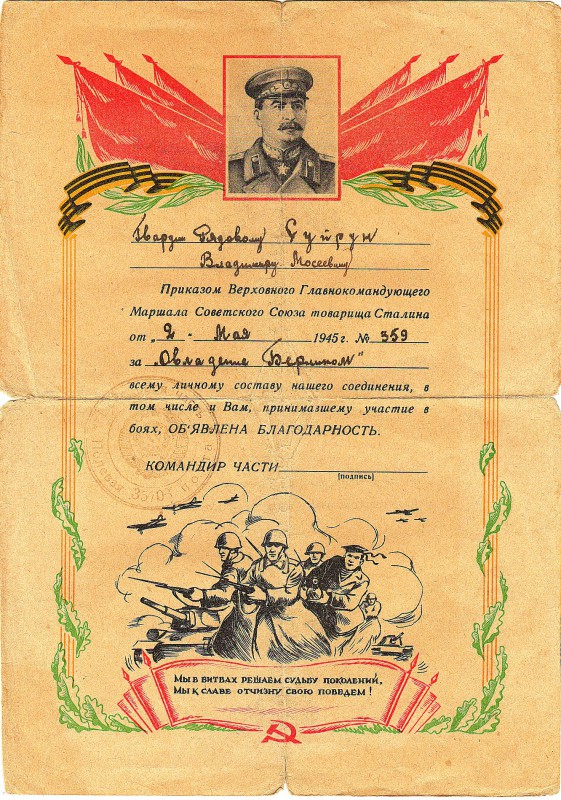 Гвардии Рядовому Суйрук
Владимиру Мосеевичу
Приказом Верховного Главнокомандующего
Маршала Советского Союза товарища Сталина
от "2 - Мая 1945 г. № 359
за "Овладение Берлином"
всему личному составу нашего соединения, в
том числе и Вам, принимавшему участие в
боях, ОБ'ЯВЛЕНА БЛАГОДАРНОСТЬ.
КОМАНДИР ЧАСТИ
(подпись)
Полевая почта
МЫ В БИТВАХ РЕШАЕМ СУДЬБУ ПОКОЛЕНИЙ,
МЫ К СЛАВЕ ОТЧИЗНУ СВОЮ ПОВЕДЕМ!